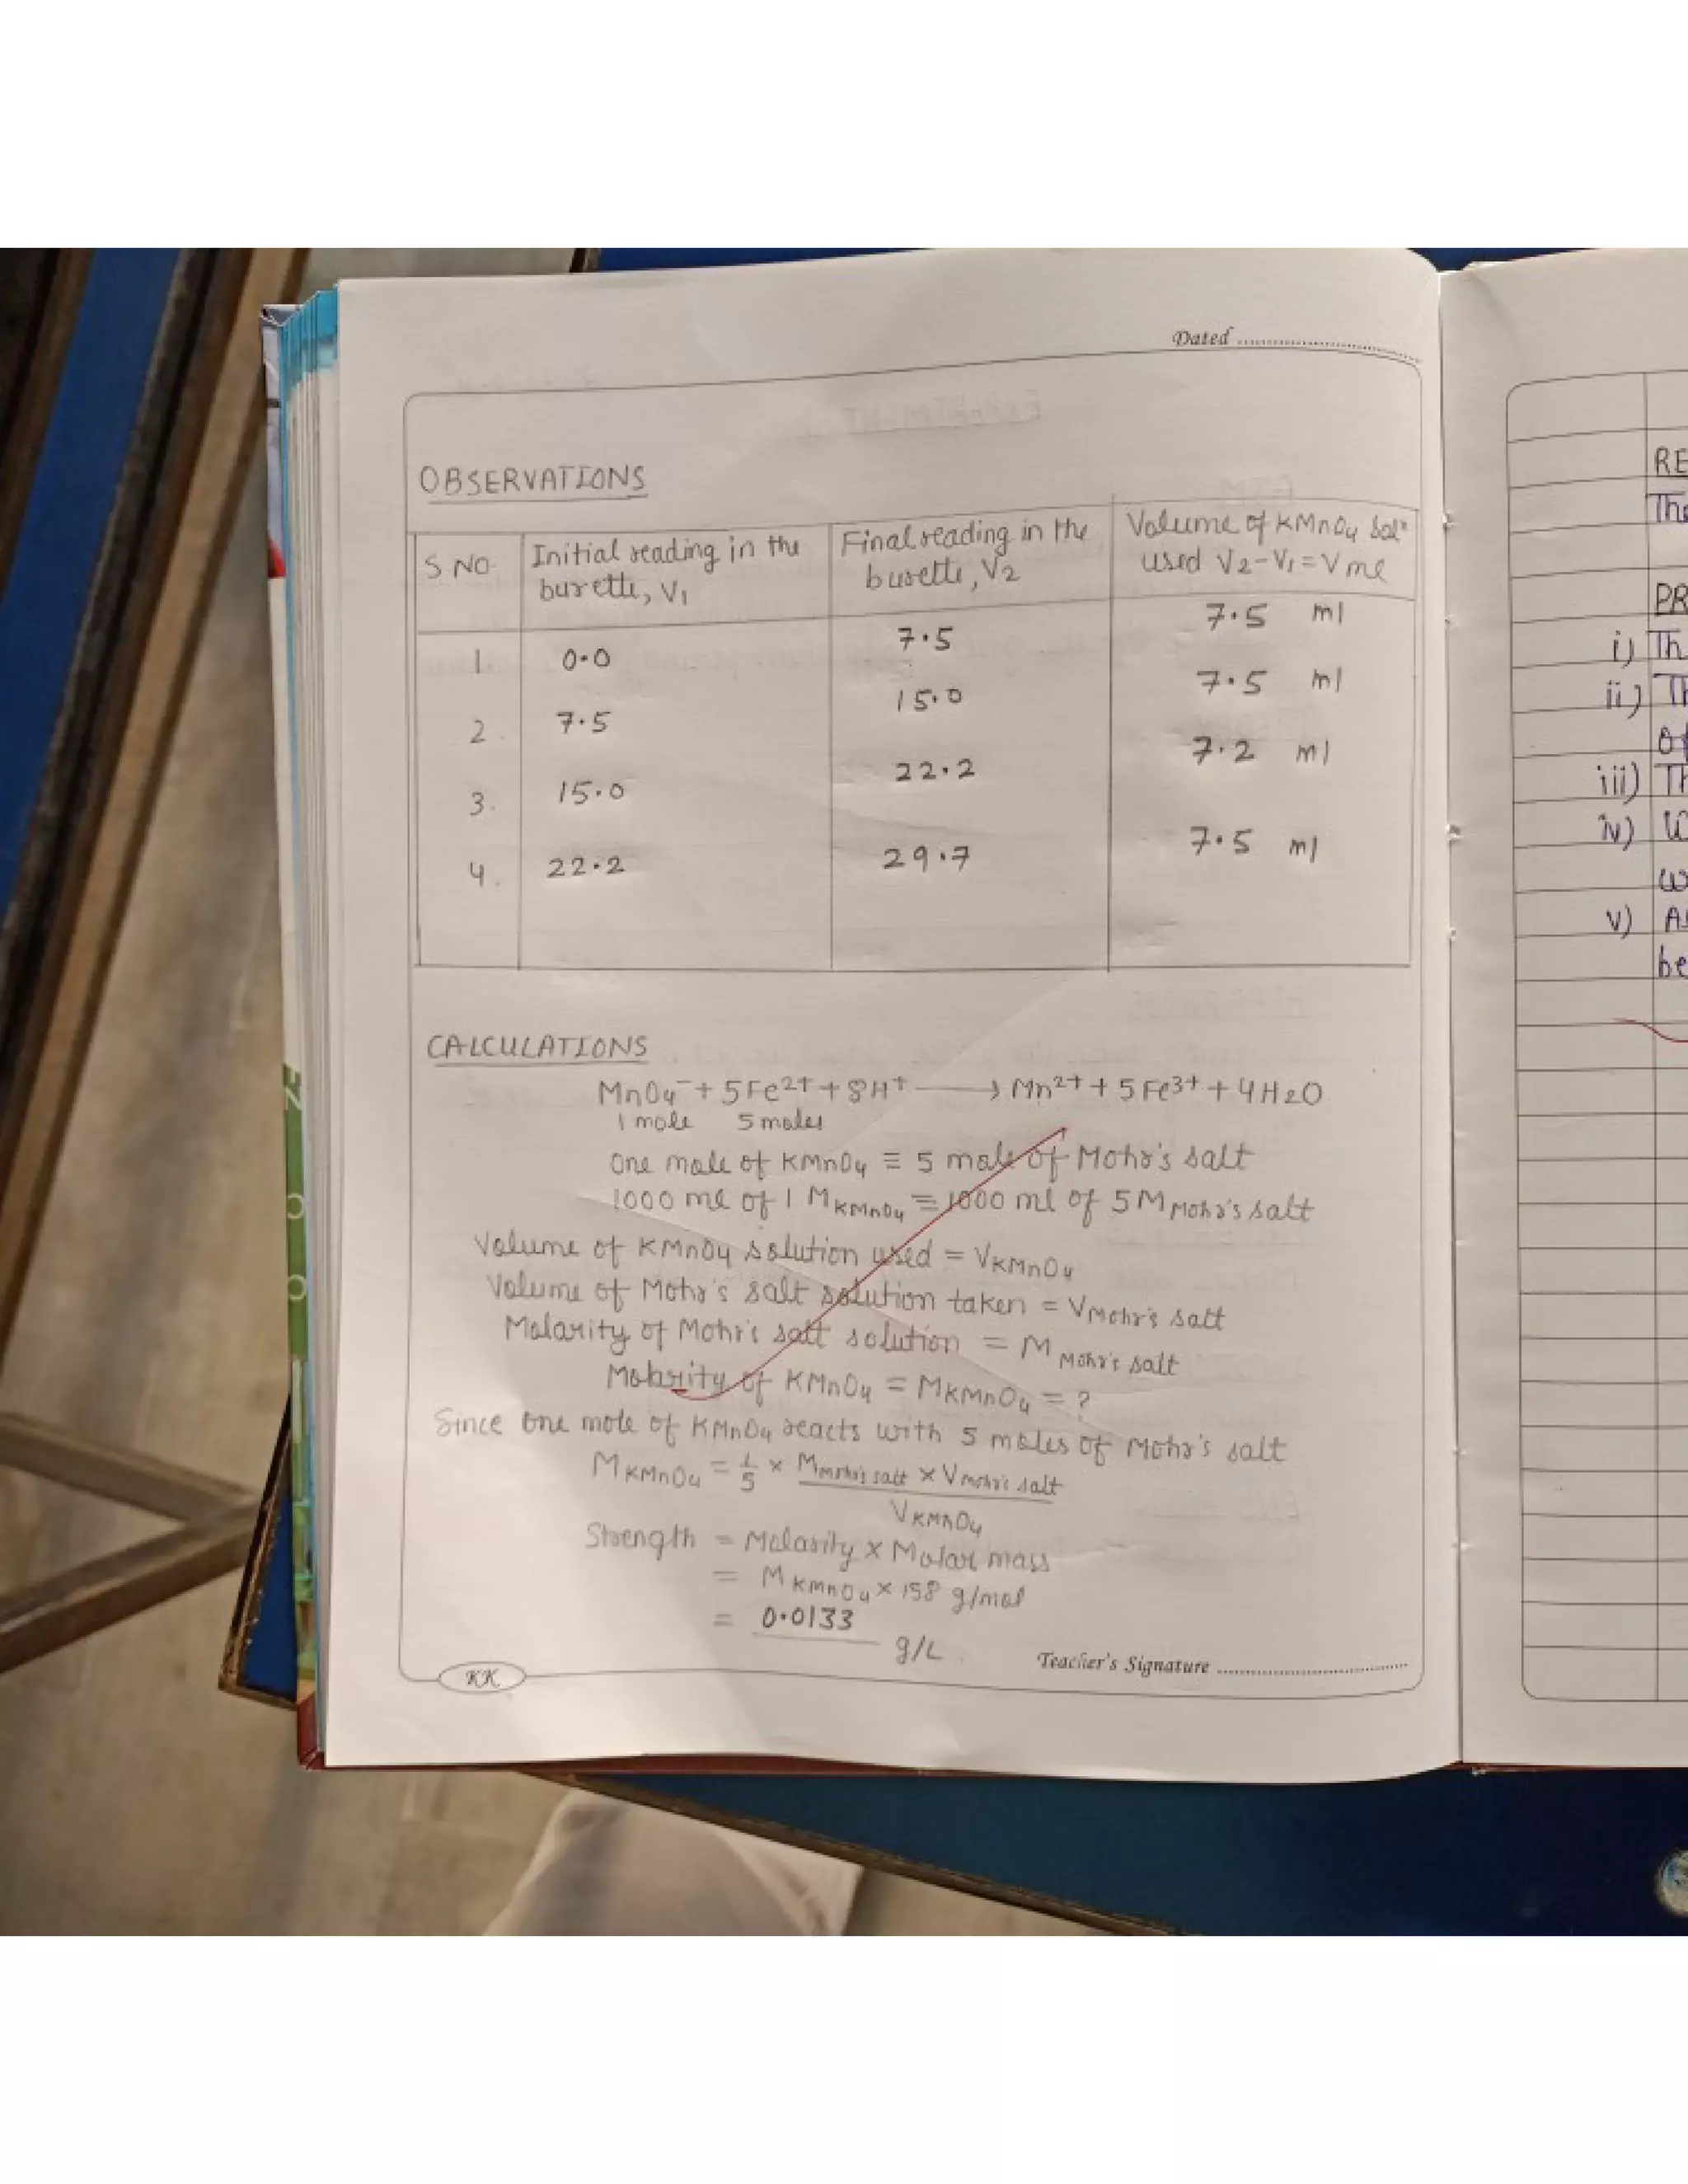 Dated
OBSERVATIONS
S NO. Initial reading in the burette, V1 Final reading in the burette, V2 Volume of KMnO4 solⁿ used V2-V1=V ml
1. 0.0 7.5 7.5 ml
2. 7.5 15.0 7.5 ml
3. 15.0 22.2 7.2 ml
4. 22.2 29.7 7.5 ml
CALCULATIONS
MnO4⁻ + 5Fe2+ + 8H+ ⟶ Mn2+ + 5Fe3+ + 4H2O
1 mole 5 moles
One mole of KMnO4 ≡ 5 mole of Mohr's salt
1000 ml of 1 M KMnO4 ≡ 1000 ml of 5 M Mohr's salt
Volume of KMnO4 solution used = VKMnO4
Volume of Mohr's salt solution taken = VMohr's salt
Molarity of Mohr's salt solution = M Mohr's salt
Molarity of KMnO4 = MKMnO4 = ?
Since one mole of KMnO4 reacts with 5 moles of Mohr's salt
MKMnO4 = 1/5 × MMohr's salt × VMohr's salt
VKMnO4
Strength = Molarity × Molar mass
= MKMnO4 × 158 g/mol
= 0.0133 g/L
Teacher's Signature
KK
RE
The
PR
i) Th
ii) Th
of
iii) Th
iv) W
w
v) As
be